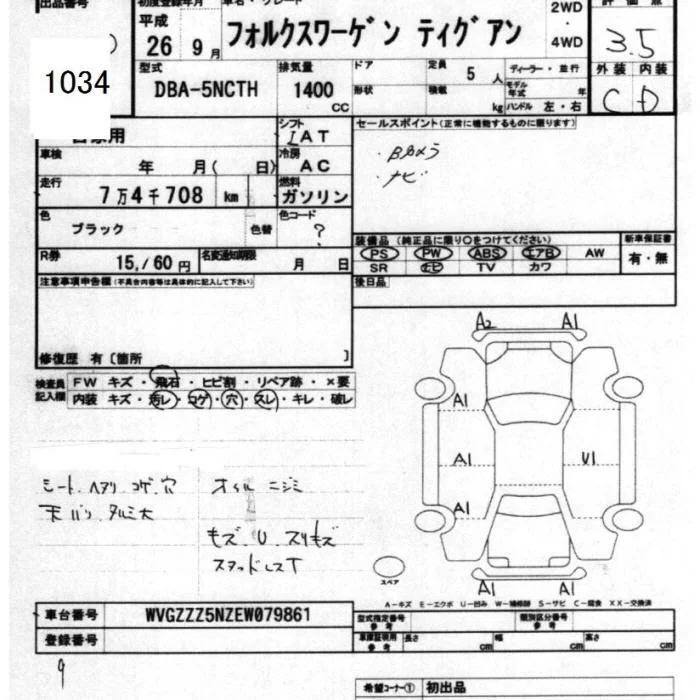 出品番号 初度登録年月 車名・グレード 2WD 評価点
平成 フォルクスワーゲン ティグアン ・
26 9月 4WD 3.5
1034
型式 排気量 ドア 定員 5人 ディーラー・並行 外装 内装
DBA-5NCTH 1400 CC 形状 積載 kg モデル年式 年 C D
ハンドル 左・右
自家用 シフト IAT セールスポイント(正常に機能するものに限ります)
車検 年 月( 日) 冷房 AC ・Bカメラ
走行 7万4千708 km 燃料 ガソリン ・ナビ
色 ブラック 色替 色コード ?
R券 15,160円 名変通知期限 月 日
装備品 (純正品に限り○をつけてください) 新車保証書
PS PW ABS エアB AW 有・無
SR ナビ TV カワ
注意事項申告欄(不具合内容等は具体的に記入して下さい) 後日品
修復歴 有〔箇所 〕
検査員記入欄 FW キズ・飛石・ヒビ割・リペア跡・×要
内装 キズ・汚レ・コゲ・穴・スレ・キレ・破レ
A2 A1
A1
A1 U1
A1
A1 A1
シート ヘタリ コゲ 穴 オイル ニジミ
天バリ タルミ大
キズ U スリキズ
スタッドレスT
スペア
A-キズ E-エクボ U-凹み W-補修跡 S-サビ C-腐食 XX-交換済
車台番号 WVGZZZ5NZEW079861 型式指定番号 参考 類別区分番号 参考
登録番号 車庫証明用 参考 長さ cm 幅 cm 高さ cm
9
希望コーナー① 初出品